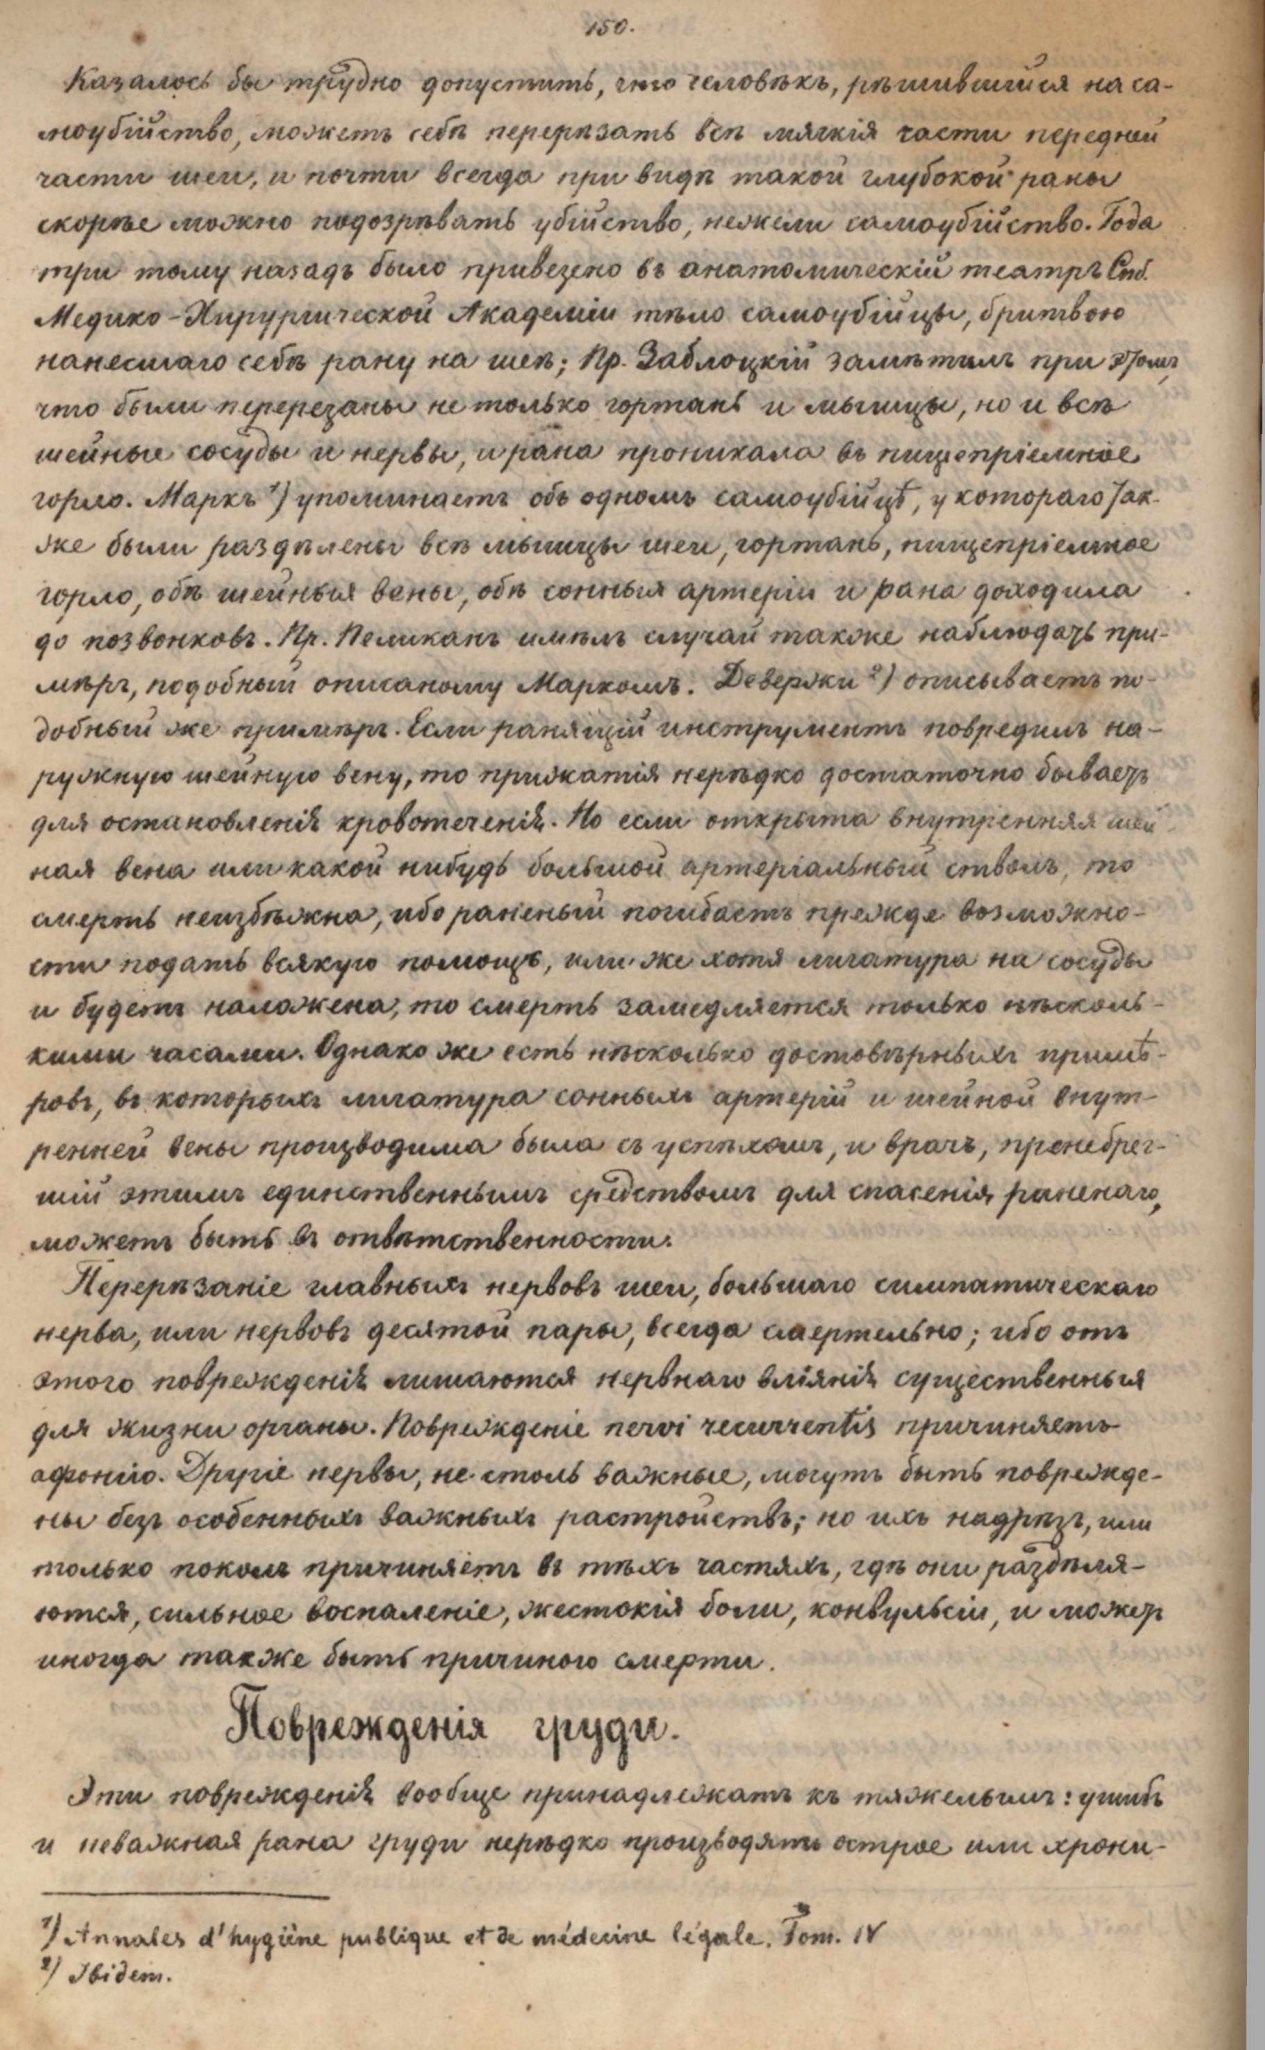 150.
Казалось бы трудно допустить, что человѣкъ, рѣшившийся на са-
моубійство, можетъ себѣ перерѣзать всѣ мягкія части передней
части шеи, и почти всегда при видѣ такой глубокой раны
скорѣе можно подозрѣвать убійство, нежели самоубійство. Года
три тому назадъ было привезено въ анатомическій театръ Спб.
Медико-Хирургической Академіи тѣло самоубійцы, бритвою
нанесшаго себѣ рану на шеѣ; Пр. Заблоцкій замѣтилъ при этомъ,
что были перерезаны не только гортань и мышцы, но и всѣ
шейные сосуды и нервы, и рана проникала въ пищепріемное
горло. Маркъ 1) упоминаетъ объ одномъ самоубійцѣ, у котораго так-
же были раздѣлены всѣ мышцы шеи, гортань, пищепріемное
горло, обѣ шейныя вены, обѣ сонныя артеріи и рана доходила
до позвонковъ. Пр. Пеликанъ имѣлъ случай также наблюдать при-
мѣръ, подобный описаному Маркомъ. Девержи 2) описываетъ по-
добный же примѣръ. Если ранящій инструментъ повредилъ на-
ружную шейную вену, то прижатія нерѣдко достаточно бываетъ
для остановленія кровотеченія. Но если открыта внутренняя шей-
ная вена или какой нибудь большой артеріальный стволъ, то
смерть неизбѣжна, ибо раненый погибаетъ прежде возможно-
сти подать всякую помощь, или же хотя лигатура на сосуды
и будетъ наложена, то смерть замедляется только нѣсколь-
кими часами. Однако же есть нѣсколько достовѣрныхъ примѣ-
ровъ, въ которыхъ лигатура сонныхъ артерій и шейной внут-
ренней вены производима была съ успѣхомъ, и врачъ, пренебрег-
шій этимъ единственнымъ средствомъ для спасенія раненаго,
можетъ быть въ отвѣтственности.
Перерѣзаніе главныхъ нервовъ шеи, большаго симпатическаго
нерва, или нервовъ десятой пары, всегда смертельно; ибо отъ
этого поврежденія лишаются нервнаго вліянія существенныя
для жизни органы. Поврежденіе nervi recurrentis причиняетъ
афонію. Другіе нервы, не столь важные, могутъ быть поврежде-
ны безъ особенныхъ важныхъ растройствъ; но ихъ надрѣзъ, или
только поколъ причиняетъ въ тѣхъ частяхъ, гдѣ они раздѣля-
ются, сильное воспаленіе, жестокія боли, конвульсіи, и можетъ
иногда также быть причиною смерти.
Поврежденія груди.
Эти поврежденія вообще принадлежатъ къ тяжелымъ: ушибъ
и неважная рана груди нерѣдко производятъ острое или хрони-
1) Annales d'hygiène publique et de médecine légale. Tom. IV
2) Ibidem.